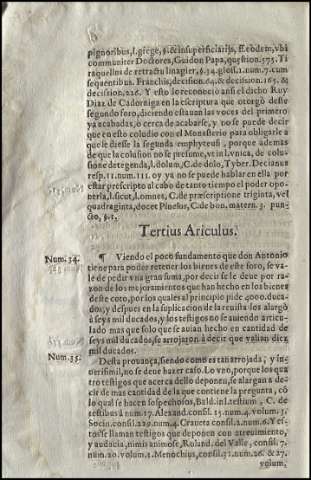 pignoribus, l. giege, §. & in superficiarijs, ff. eodem, vbi
communiter Doctores, Guidon Papa, quęstion. 575. Ti
raquellus de retractu linagier, §. 34. glos. 1. num. 7. cum
sequentibus. Franchis, decision. 64. & decision. 165. &
decision. 226. Y esto lo reconocio ansi el dicho Ruy
Diaz de Cadorniga en la escriptura que otorgó deste
segundo foro, diciendo estauan las voces del primero
ya acabadas, ò cerca de acabarse, y no se puede decir
que en esto coludio con el Monasterio para obligarle a
que le diesse la segunda emphyteusi, porque ademas
de que la colusion no se presume, vt in l. vnica, de colu-
sione detegenda, l. dolum, C. de dolo, Tyber. Decianus
resp. 11. num. 111. oy ya no se puede hablar en ella por
estar prescripto al cabo de tanto tiempo el poder opo-
nerla, l. sicut, l. omnes, C. de præscriptione triginta, vel
quadraginta, docet Pinelus, C. de bon. matern. 3. pun-
cio, §. 1.
Tertius Ariculus.
Num. 34.
¶ Viendo el poco fundamento que don Antonio
tiene para poder retener los bienes de este foro, se va-
le de pedir vna gran suma, por decir se le deue por ra-
zon de los mejoramientos que han hecho en los bienes
deste coto, por los quales al principio pide 4000. duca-
dos; y despues en la suplicacion de la reuista los alargó
à seys mil ducados, y los testigos no se auiendo articu-
lado mas que solo que se auian hecho en cantidad de
seys mil ducados, se arrojaron à decir que valian diez
mil ducados.
Num. 35.
Desta prouança, siendo como es tan arrojada, y in-
uerisimil, no se deue hazer caso. Lo vno, porque los qua
tro testigos que acerca dello deponen, se alargan a de-
cir de mas cantidad de la que contiene la pregunta, cõ
lo qual se hacen sospechosos, Bald. in l. testium, C. de
testibus à num. 17. Alexand. consil. 15. num. 4. volum. 3.
Socin. consil. 229. num. 4. Craueta consil. 2. num. 6. Y es-
tos se llaman testigos que deponen con atreuimiento,
y audacia, nimis animose, Roland. del Valle, consil. 7.
num. 20. volum. 1. Menochius, consil. 31. num. 26. & 27.
volum.